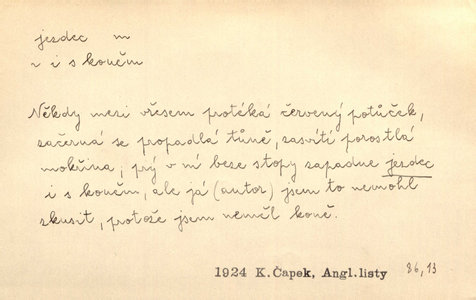 jezdec m
~ i s koněm
Někdy mezi vřesem protéká červený potůček,
začerná se propadlá tůně, zasvítí porostlá
mokřina; prý v ní beze stopy zapadne jezdec
i s koněm, ale já (autor) jsem to nemohl
zkusit, protože jsem neměl koně.
1924 K.Čapek, Angl.listy 86,13